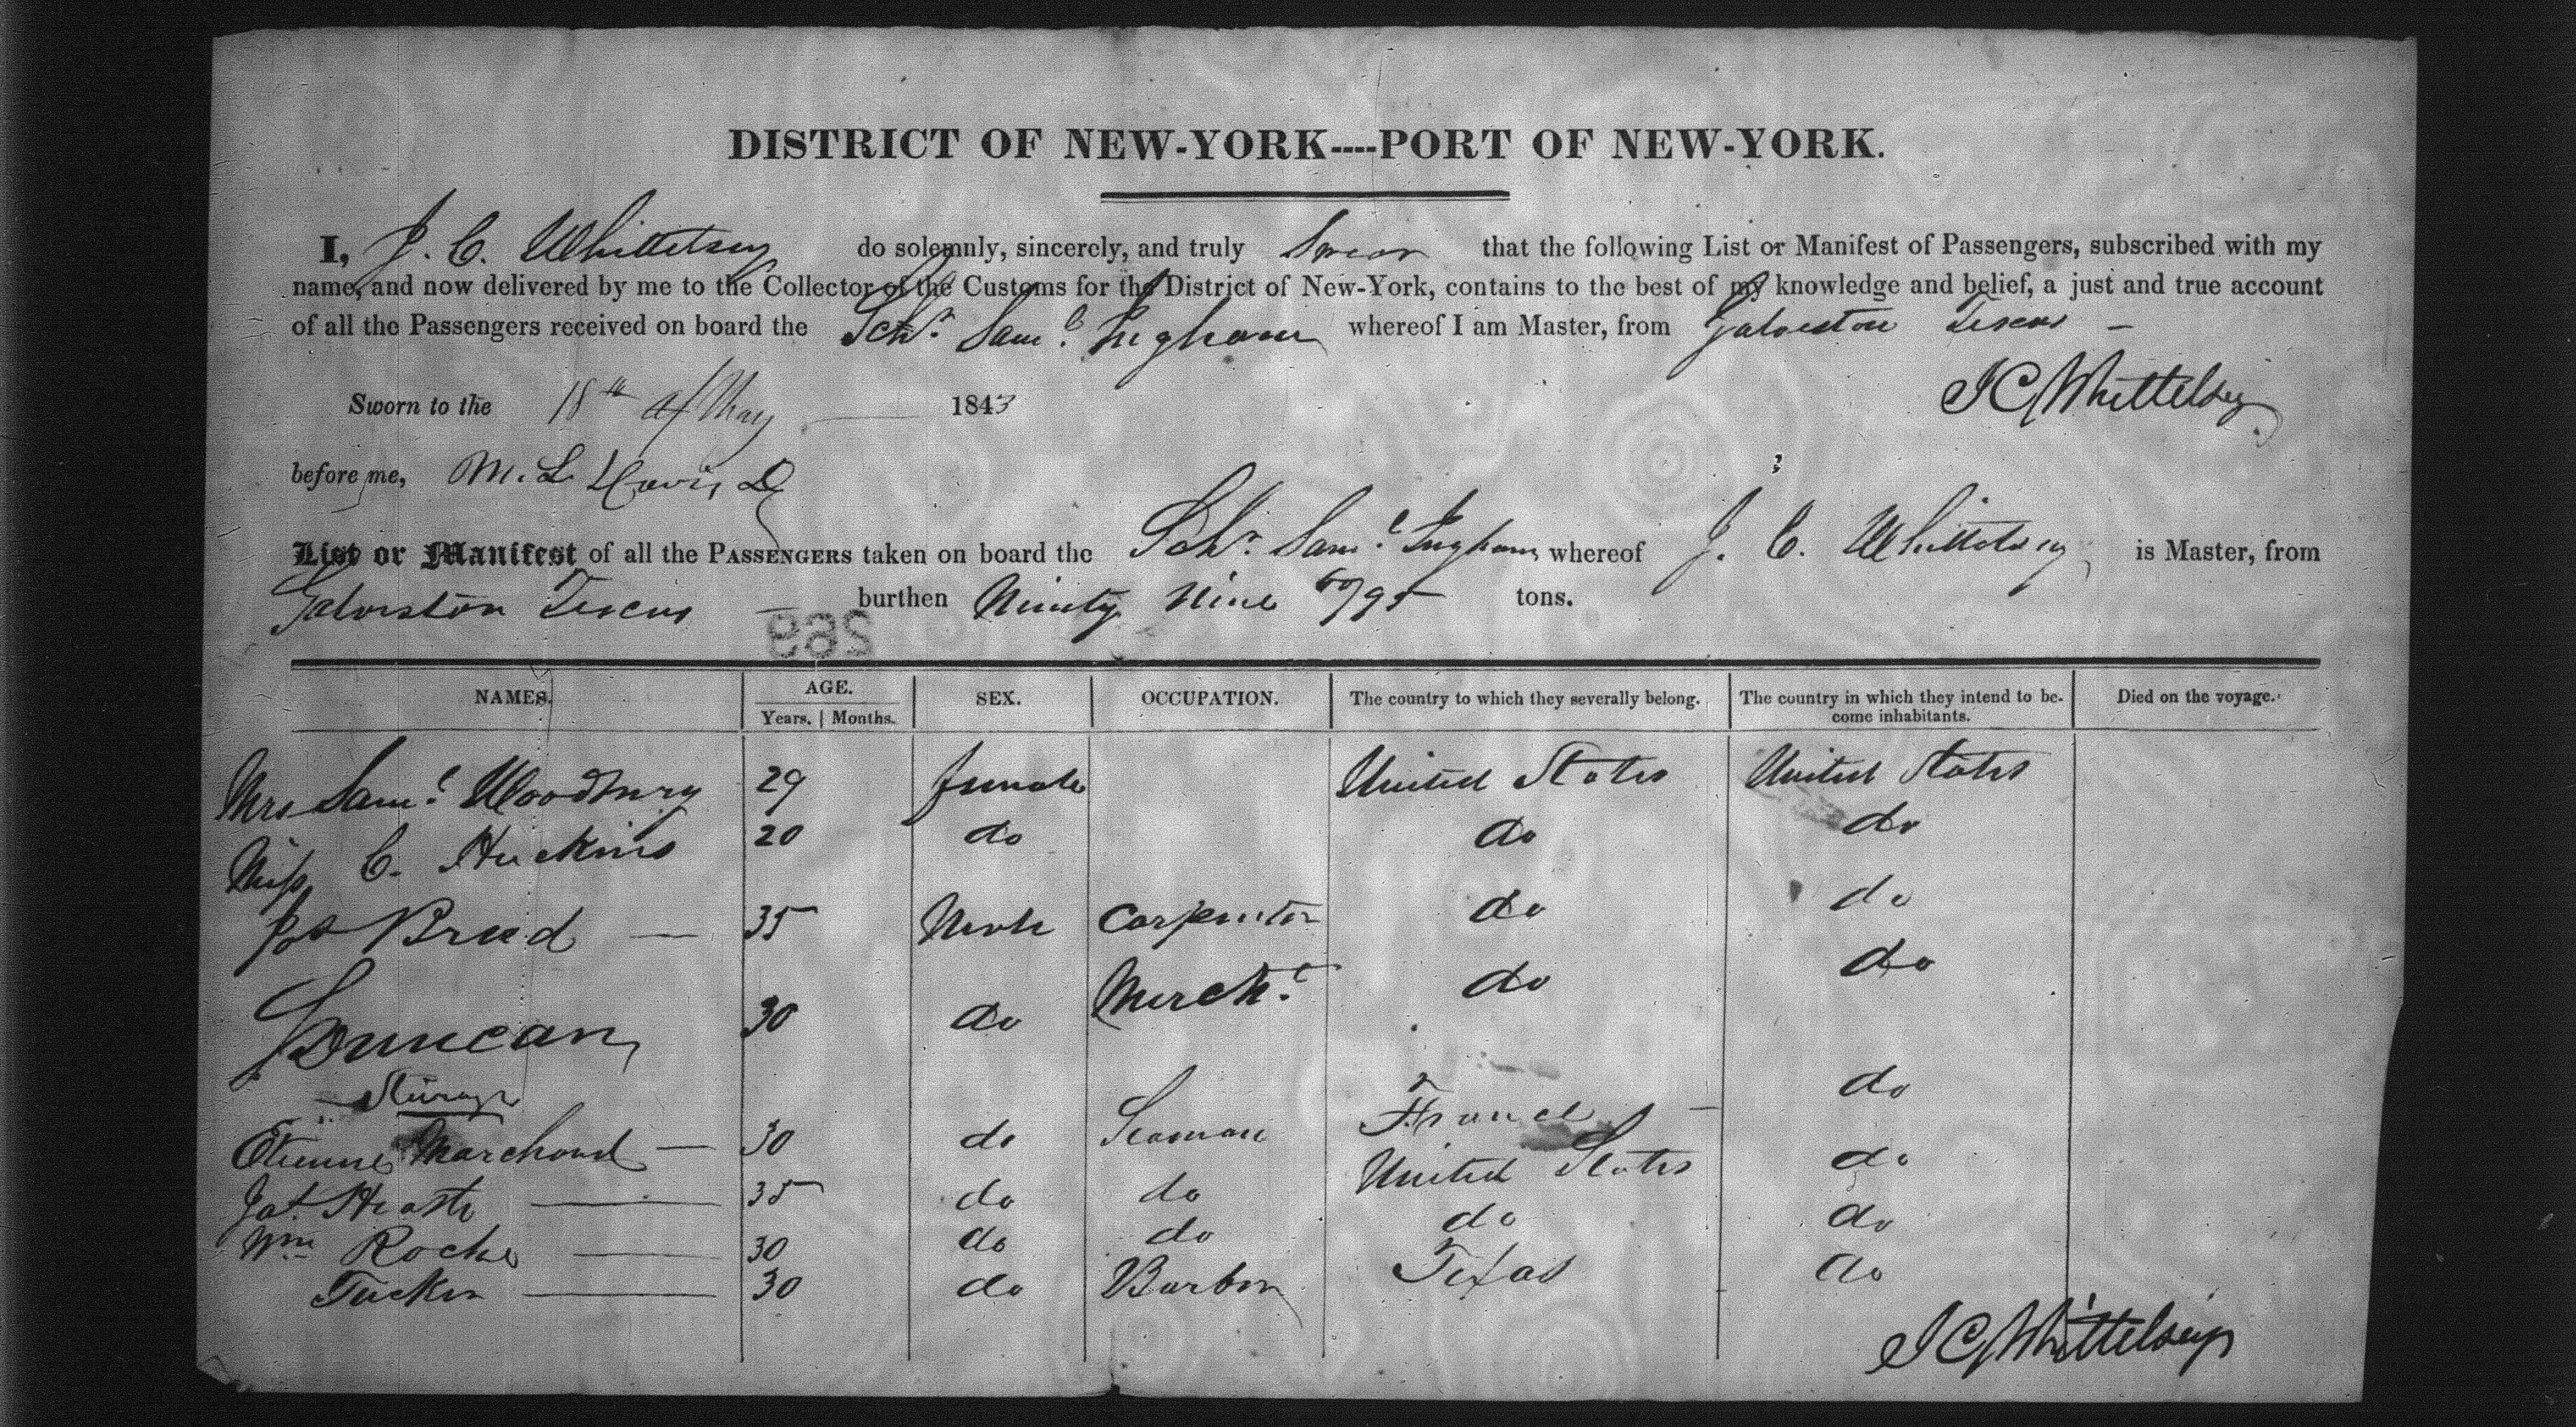 DISTRICT OF NEW-YORK----PORT OF NEW-YORK.
I, J. C. Whittelsey do solemnly, sincerely, and truly Swear that the following List or Manifest of Passengers, subscribed with my
name, and now delivered by me to the Collector of the Customs for the District of New-York, contains to the best of my knowledge and belief, a just and true account
of all the Passengers received on board the Schr. Saml. Ingham whereof I am Master, from Galveston Texas –
Sworn to the 18th of May 1843 J C Whittelsey
before me, M. L. Davis
List or Manifest of all the PASSENGERS taken on board the Schr. Saml. Ingham whereof J. C. Whittelsey is Master, from
Galveston Texas – burthen Ninety Nine /95 tons.
NAMES. AGE. SEX. OCCUPATION. The country to which they severally belong. The country in which they intend to be- Died on the voyage.
Years. | Months. come inhabitants.
Mrs Saml. Woodbury 29 female United States United States
Miss C. Huckins 20 do do do
Jos Breed — 35 Male Carpenter do do
Duncan 30 do Mercht. do do
Steerage
Etienne Marchand — 30 do Seaman France – do
Jas. — 35 do do United States do
Wm Roche — 30 do do do do
Tucker — 30 do Barber Texas do
J C Whittelsey